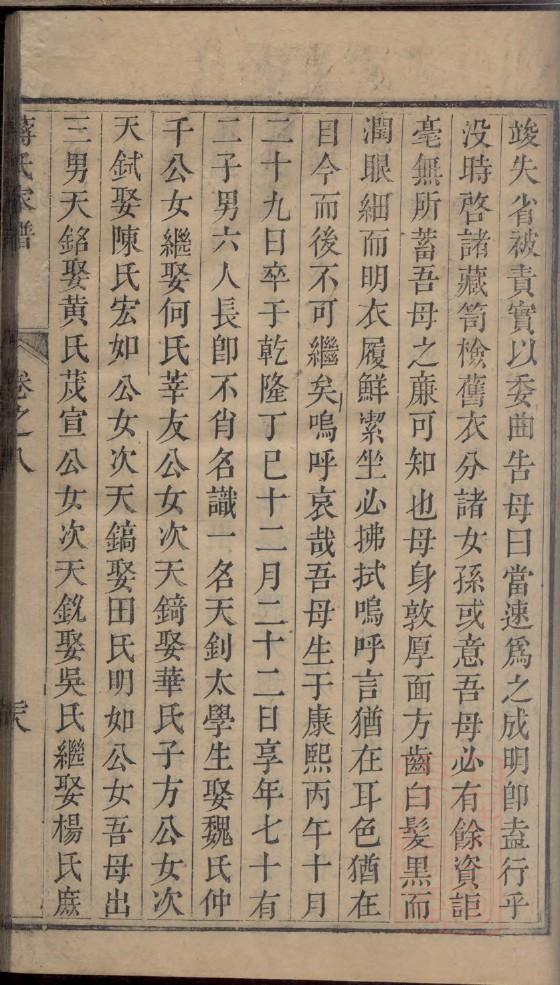 竣失省被責實以委曲告母曰當速爲之成明卽盍行乎
没時啓諸藏笥檢舊衣分諸女孫或意吾母必有餘資詎
毫無所蓄吾母之亷可知也母身敦厚面方齒白髮黑而
潤眼細而明衣履鮮潔坐必拂拭嗚呼言猶在耳色猶在
目今而後不可繼矣嗚呼哀哉吾母生于康熙丙午十月
二十九日卒于乾隆丁巳十二月二十二日享年七十有
二子男六人長卽不肖名識一名天釗太學生娶魏氏仲
千公女繼娶何氏莘友公女次天錡娶華氏子方公女次
天鉽娶陳氏宏如公女次天鎬娶田氏明如公女吾母出
三男天銘娶黃氏茂宣公女次天銳娶吳氏繼娶楊氏庶
蔣氏家譜 卷之八